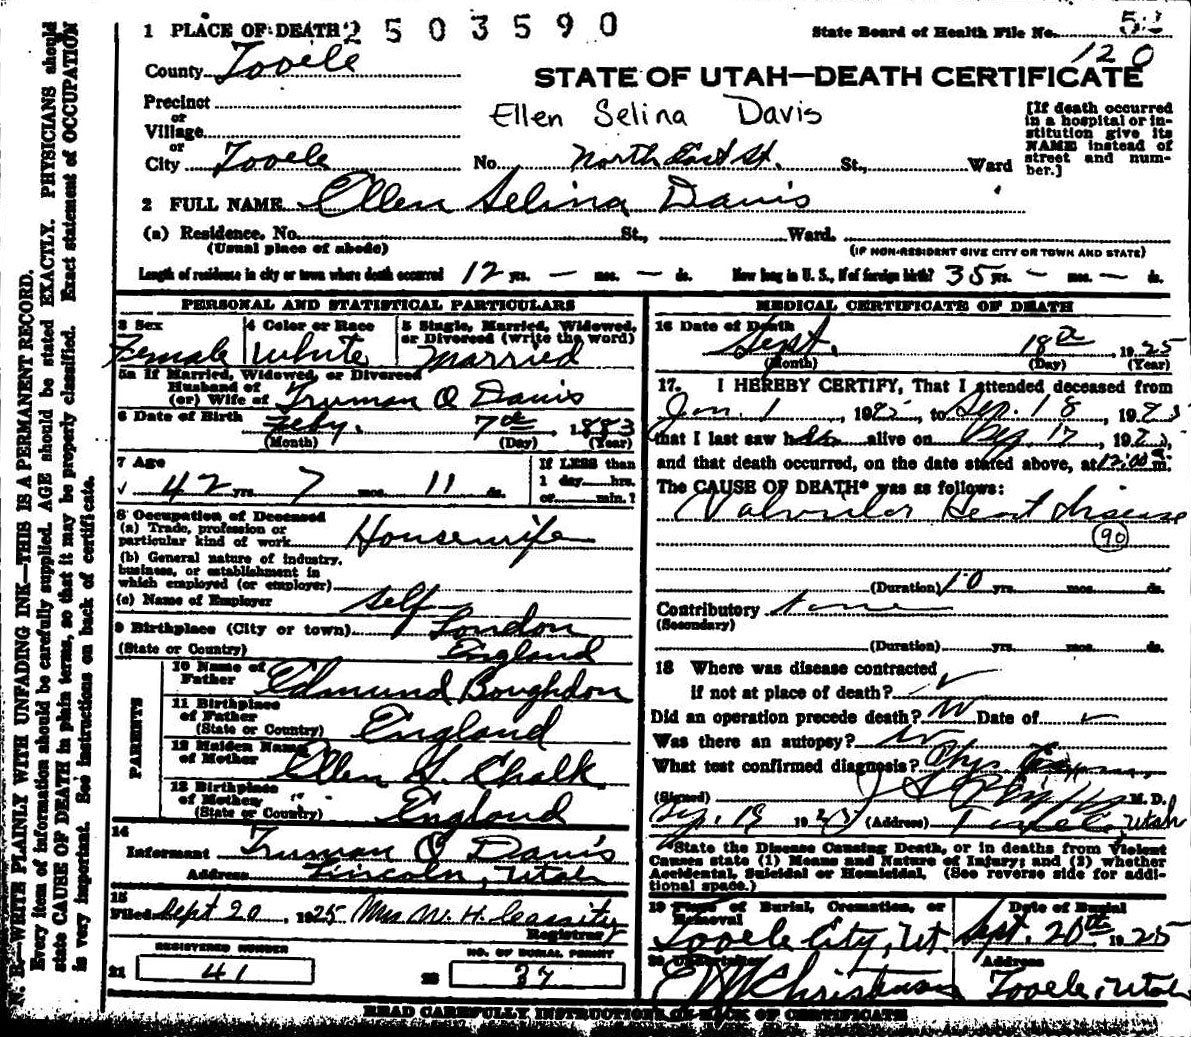 1 PLACE OF DEATH 2 5 0 3 5 9 0
State Board of Health File No. 52
120
County Tooele
STATE OF UTAH—DEATH CERTIFICATE
Precinct
or
Village
or
City Tooele No. North East St. St., Ward
Ellen Selina Davis
[If death occurred in a hospital or institution give its NAME instead of street and number.]
2 FULL NAME Ellen Selina Davis
(a) Residence. No. St., Ward.
(Usual place of abode) (IF NON-RESIDENT GIVE CITY OR TOWN AND STATE)
Length of residence in city or town where death occurred 12 yrs. — mos. — ds. How long in U. S., if of foreign birth? 35 yrs. — mos. — ds.
PERSONAL AND STATISTICAL PARTICULARS
3 Sex
Female
4 Color or Race
White
5 Single, Married, Widowed, or Divorced (write the word)
Married
5a If Married, Widowed, or Divorced
Husband of
(or) Wife of Truman O Davis
6 Date of Birth Feby. 7th 1883
(Month) (Day) (Year)
7 Age
42 yrs. 7 mos. 11 ds.
If LESS than
1 day hrs.
or min.?
8 Occupation of Deceased
(a) Trade, profession or
particular kind of work Housewife
(b) General nature of industry,
business, or establishment in
which employed (or employer)
(c) Name of Employer self
9 Birthplace (City or town) London
(State or Country) England
PARENTS
10 Name of
Father Edmund Boughdon
11 Birthplace
of Father
(State or Country) England
12 Maiden Name
of Mother Ellen G. Chalk
13 Birthplace
of Mother
(State or Country) England
14
Informant Truman O Davis
Address Lincoln, Utah
15
Filed Sept 20, 1925 Mrs W. H. Cassity
Registrar
REGISTERED NUMBER
21 41
NO. OF BURIAL PERMIT
22 37
MEDICAL CERTIFICATE OF DEATH
16 Date of Death
Sept. 18th, 1925
(Month) (Day) (Year)
17. I HEREBY CERTIFY, That I attended deceased from
Jan. 1 1925, to Sep. 18, 1925
that I last saw her alive on Sep 17, 192
and that death occurred, on the date stated above, at 12:00 a m.
The CAUSE OF DEATH* was as follows:
Valvular Heart disease
90
(Duration) 10 yrs. mos. ds.
Contributory none
(Secondary)
(Duration) yrs. mos. ds.
18 Where was disease contracted
if not at place of death?
Did an operation precede death? no Date of
Was there an autopsy? no
What test confirmed diagnosis? Phys.
(Signed) M. D.
Sep. 19 192 (Address) Tooele, Utah
*State the Disease Causing Death, or in deaths from Violent Causes state (1) Means and Nature of Injury; and (2) whether Accidental, Suicidal or Homicidal. (See reverse side for additional space.)
19 Place of Burial, Cremation, or Removal
Tooele City, Ut
Date of Burial
Sept. 20th 1925
20 Undertaker
E M Christensen
Address
Tooele, Utah
READ CAREFULLY INSTRUCTIONS ON BACK OF CERTIFICATE
N. B.—WRITE PLAINLY WITH UNFADING INK—THIS IS A PERMANENT RECORD.
Every item of information should be carefully supplied. AGE should be stated EXACTLY. PHYSICIANS should
state CAUSE OF DEATH in plain terms, so that it may be properly classified. Exact statement of OCCUPATION
is very important. See instructions on back of certificate.